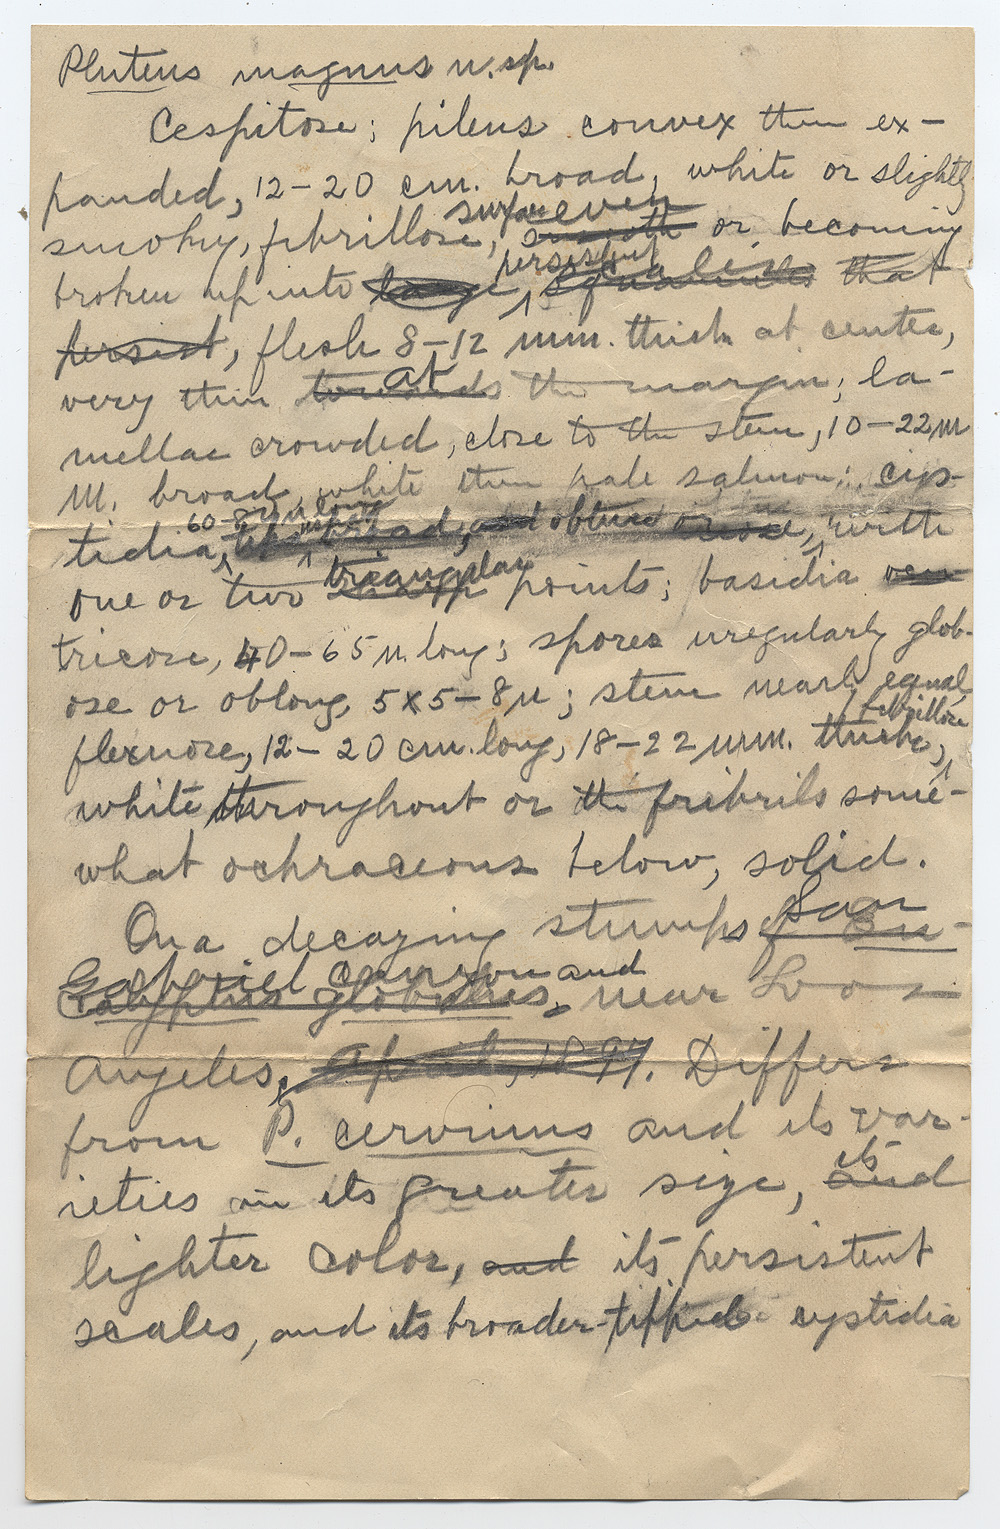 Pluteus magnus n. sp.
Cespitose; pileus convex then ex-
panded, 12-20 cm. broad, white or slightly
smoky, fibrillose, surface even smooth or becoming
broken up into large persistent scales that
persist, flesh 8-12 mm. thick at center,
very thin towards at the margin; la-
mellae crowded, close to the stem, 10-22 m
m. broad, white then pale salmon; cys-
tidia, 60- long broad, and obtuse with
one or two sharp triangular points; basidia
tricose, 40-65 µ long; spores irregularly glob-
ose or oblong, 5x5-8 µ; stem nearly equal,
flexuose, 12-20 cm. long, 18-22 mm. thick, fibrillose,
white throughout or the fribrils some-
what ochraceous below, solid.
On a decaying stumps of Eu- San
calyptus globulus, Gabriel Canyon and near Los
Angeles, April, 1897. Differs
from P. cervinus and its var-
ieties in its greater size, and its
lighter color, and its persistent
scales, and its broader-tipped cystidia